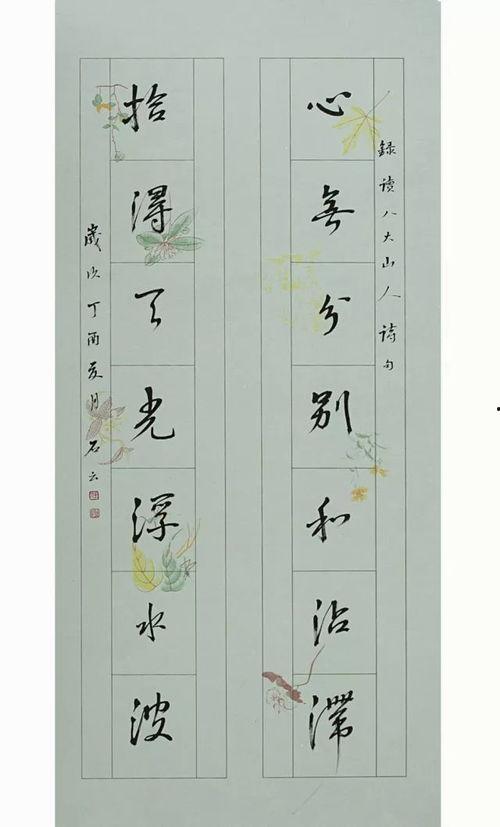 錄讀八大山人詩句
心無分別和沾滯
拾得天光浮水波
歲次丁酉夏月石云